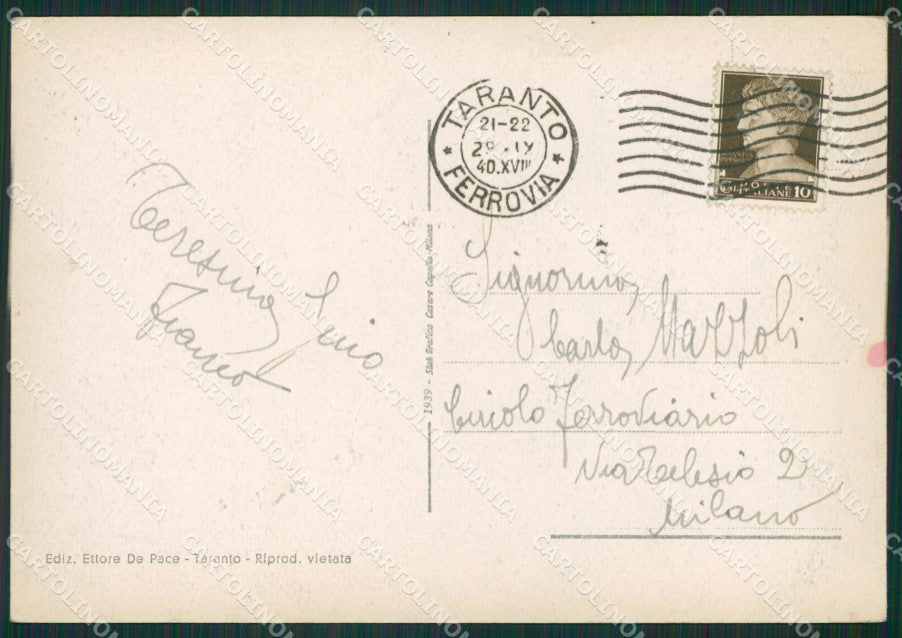 TARANTO
21-22
29.IX
40.XVIII
FERROVIA
POSTE
ITALIANE 10
Teresina Gino
Franco
1939 - Stab. Grafico Cesare Capello-Milano
Signorina
Carla Mazzoli
Circolo Ferroviario
Via Telesio 2
Milano
Ediz. Ettore De Pace - Taranto - Riprod. vietata
CARTOLINOMANIA